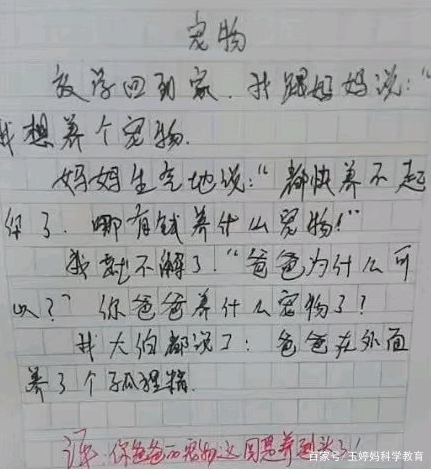 宠物
放学回到家.我跟妈妈说:“
我想养个宠物.
妈妈生气地说:“都快养不起
你了.哪有钱养什么宠物!”
我就不解了!“爸爸为什么可
以?”你爸爸养什么宠物了?
我大伯都说了:爸爸在外面
养了个狐狸精.
评:你爸爸的宠物这回养到头了!
百家号/玉婷妈科学教育